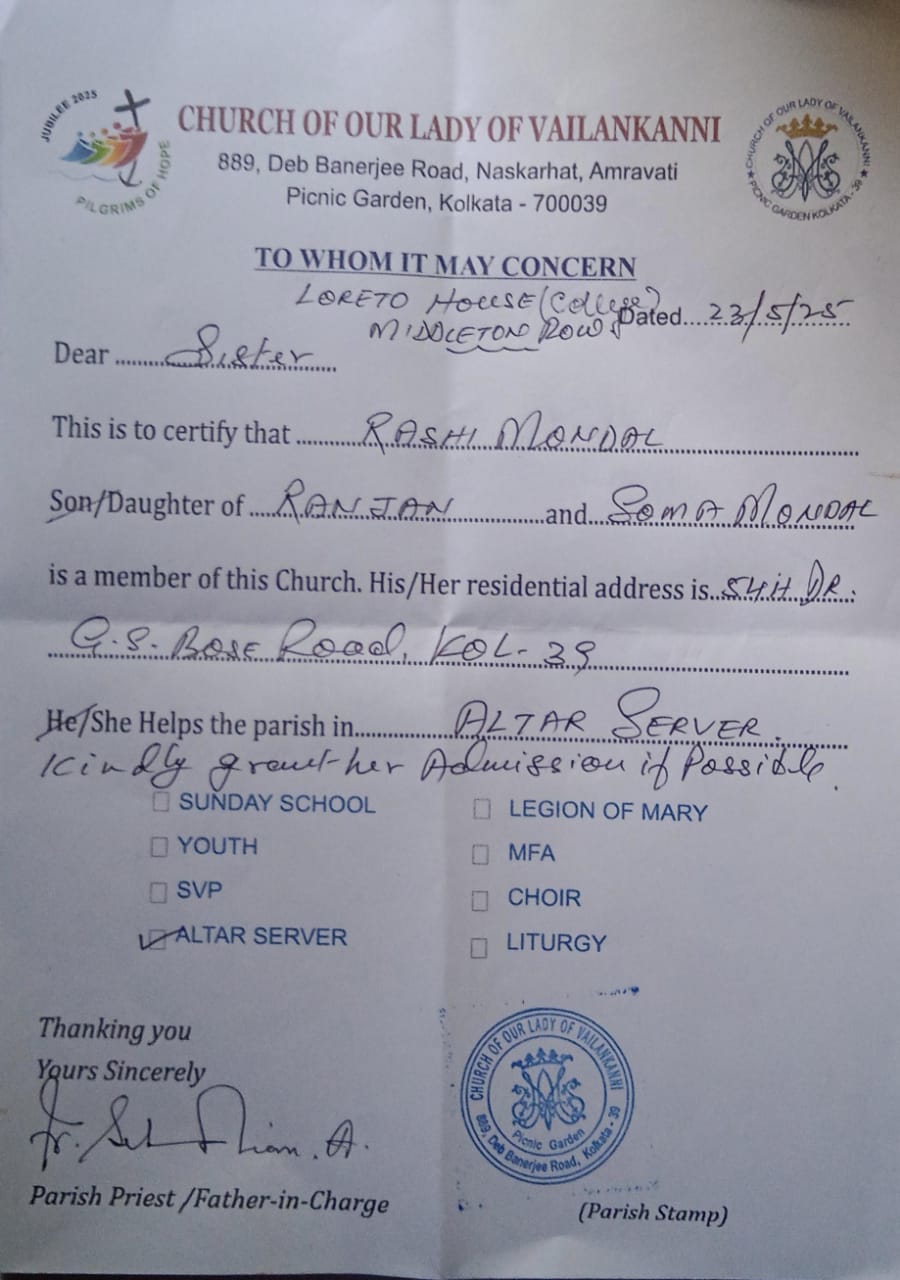 JUBILEE 2025
PILGRIMS OF HOPE
CHURCH OF OUR LADY OF VAILANKANNI
889, Deb Banerjee Road, Naskarhat, Amravati
Picnic Garden, Kolkata - 700039
★ CHURCH OF OUR LADY OF VAILANKANNI ★
PICNIC GARDEN KOLKATA - 39
TO WHOM IT MAY CONCERN
LORETO HOUSE (College)
MIDDLETON ROW Dated....23/5/25
Dear ........Sister............
This is to certify that ...........RASHI MONDAL............
Son/Daughter of ....RANJAN............and...SOMA MONDAL
is a member of this Church. His/Her residential address is..54H DR.
G.S. BOSE Road, KOL-39
He/She Helps the parish in..............ALTAR SERVER.
Kindly grant her Admission if Possible.
SUNDAY SCHOOL LEGION OF MARY
YOUTH MFA
SVP CHOIR
ALTAR SERVER LITURGY
Thanking you
Yours Sincerely
Fr. A.
Parish Priest /Father-in-Charge
CHURCH OF OUR LADY OF VAILANKANNI
Picnic Garden
889, Deb Banerjee Road, Kolkata - 39
(Parish Stamp)